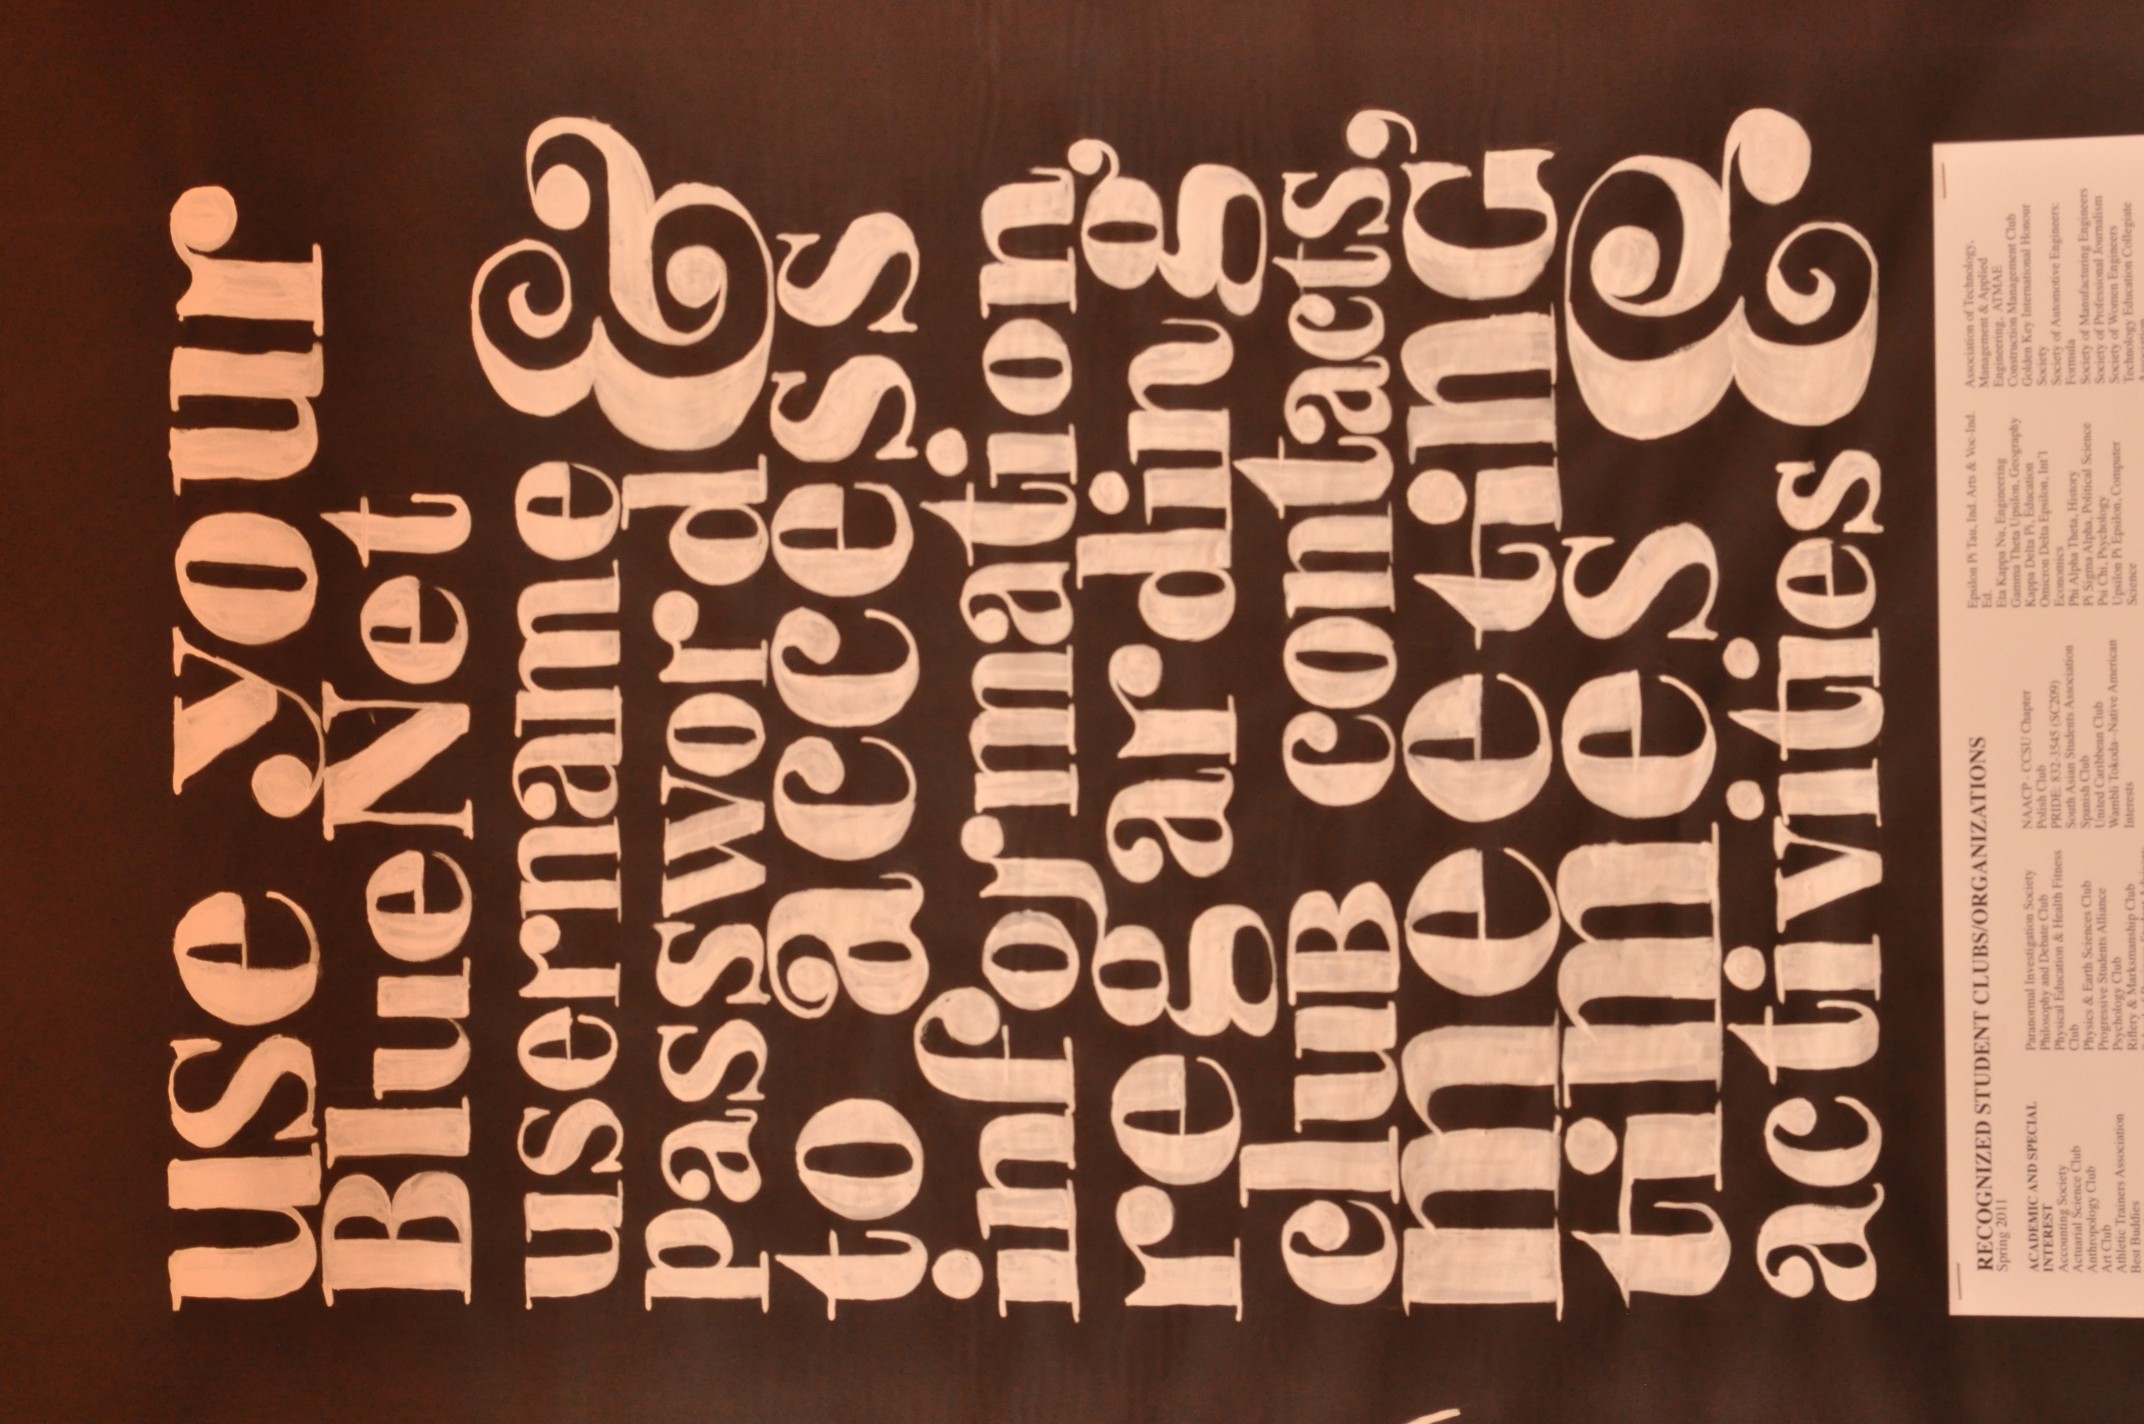 use your
BlueNet
username &
password
to access
information
regarding
cluB contacts,
meetinG
times &
activities
RECOGNIZED STUDENT CLUBS/ORGANIZATIONS
Spring 2011
ACADEMIC AND SPECIAL
INTEREST
Accounting Society
Actuarial Science Club
Anthropology Club
Art Club
Athletic Trainers Association
Best Buddies
Paranormal Investigation Society
Philosophy and Debate Club
Physical Education & Health Fitness
Club
Physics & Earth Sciences Club
Progressive Students Alliance
Psychology Club
Riflery & Marksmanship Club
NAACP - CCSU Chapter
Polish Club
PRIDE: 832-3545 (SC209)
South Asian Students Association
Spanish Club
United Caribbean Club
Wambli Tokoda--Native American
Interests
Epsilon Pi Tau, Ind. Arts & Voc-Ind.
Ed.
Eta Kappa Nu, Engineering
Gamma Theta Upsilon, Geography
Kappa Delta Pi, Education
Omicron Delta Epsilon, Int'l
Economics
Phi Alpha Theta, History
Pi Sigma Alpha, Political Science
Psi Chi, Psychology
Upsilon Pi Epsilon, Computer
Science
Association of Technology,
Management & Applied
Engineering, ATMAE
Construction Management Club
Golden Key International Honour
Society
Society of Automotive Engineers:
Formula
Society of Manufacturing Engineers
Society of Professional Journalism
Society of Women Engineers
Technology Education Collegiate